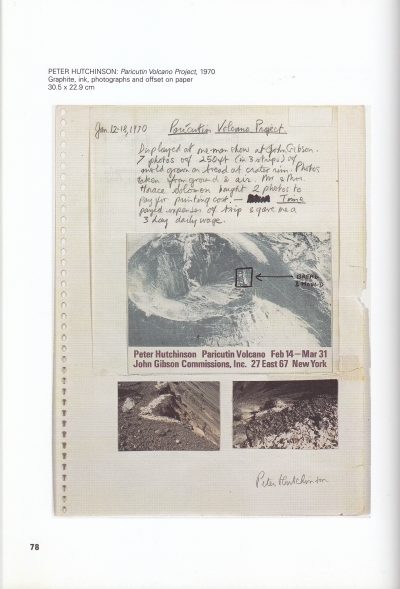 PETER HUTCHINSON: Paricutin Volcano Project, 1970
Graphite, ink, photographs and offset on paper
30.5 x 22.9 cm
Jan. 12-18, 1970 Paricutin Volcano Project.
Displayed at one-man show at John Gibson.
7 photos of 250 ft (in 3 strips) of
mold grown on bread at crater rim. Photos
taken from ground & air. Mr & Mrs.
Horace Solomon bought 2 photos to
pay for printing cost. — Time
payed expenses of trip & gave me a
3 day daily wage.
BREAD
& MOULD
Peter Hutchinson Paricutin Volcano Feb 14—Mar 31
John Gibson Commissions, Inc. 27 East 67 New York
Peter Hutchinson
78